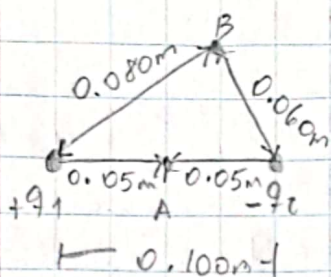 B
0.080m
0.060m
0.05m 0.05m
+q1 A -q2
0.100m